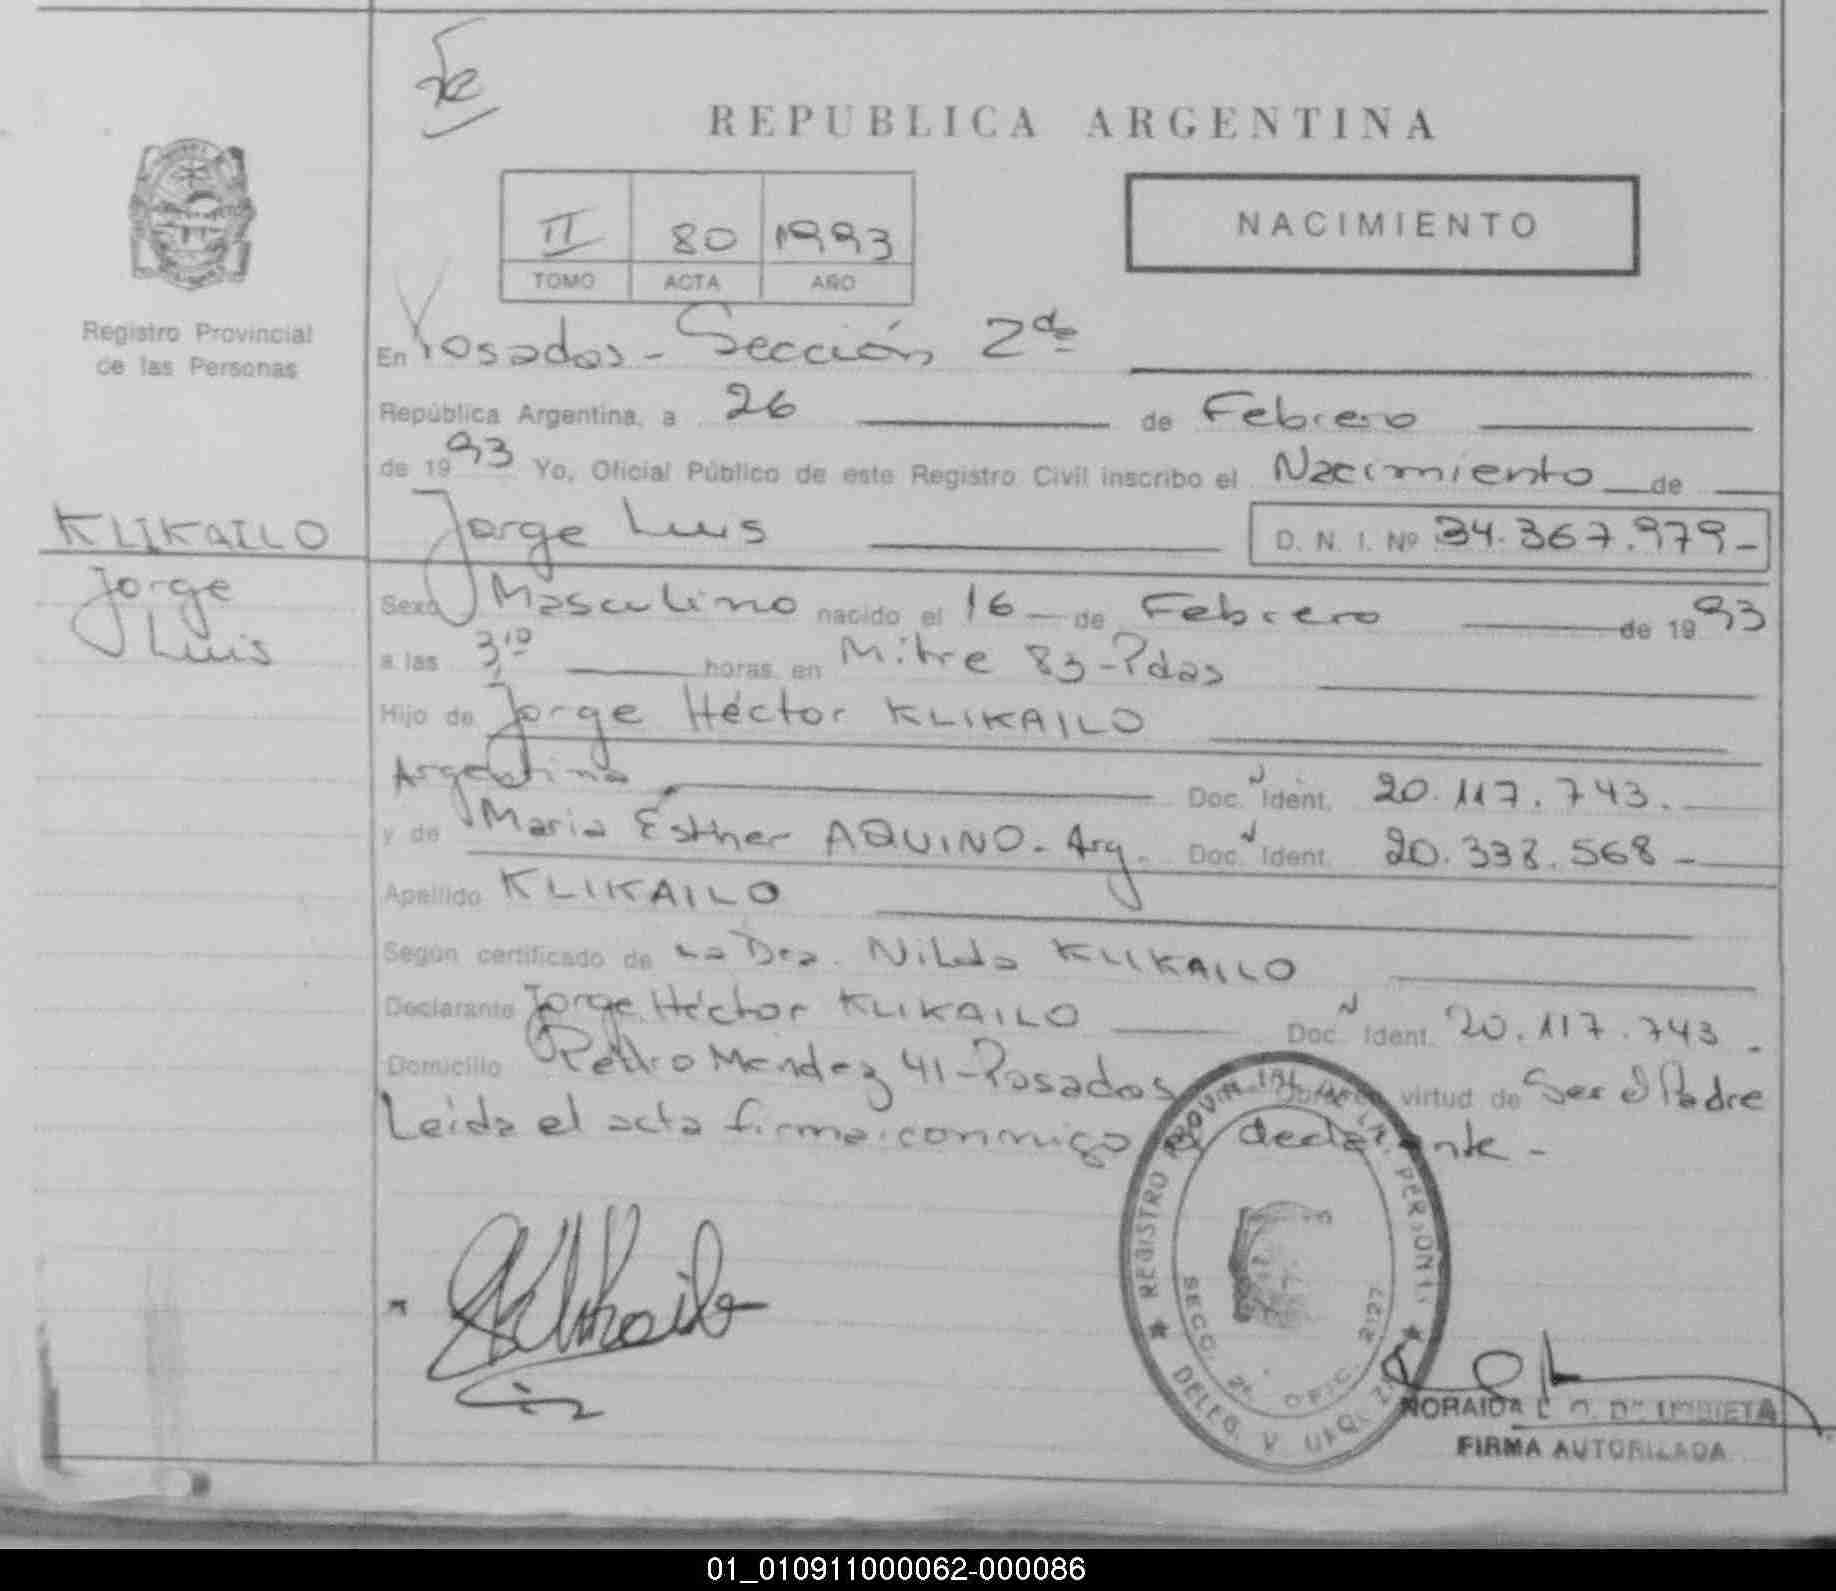 REPUBLICA ARGENTINA
NACIMIENTO
II 80 1993
TOMO ACTA AÑO
Registro Provincial
de las Personas
En Posadas - Sección 2da
República Argentina, a 26 de Febrero
de 1993 Yo, Oficial Público de este Registro Civil inscribo el Nacimiento de
KLIKAILO
Jorge
Luis
Jorge Luis D. N. I. Nº 34.367.979-
Sexo Masculino nacido el 16 de Febrero de 1993
a las 3,10 horas en Mitre 83-Pdas
Hijo de Jorge Héctor KLIKAILO
Argentina Doc. Ident. 20.117.743.
y de Maria Esther AQUINO - Arg. Doc. Ident. 20.338.568-
Apellido KLIKAILO
Según certificado de La Dra. Nilda KLIKAILO
Declarante Jorge Héctor KLIKAILO Doc. Ident. 20.117.743.
Domicilio Pedro Mendez 41-Posadas virtud de Ser el Padre
Leída el acta firma conmigo el declarante -
REGISTRO PROVINCIAL DE LAS PERSONAS
SECC. 2a. OFIC. 2127
DELEG.
NORAIDA
FIRMA AUTORIZADA
01_010911000062-000086